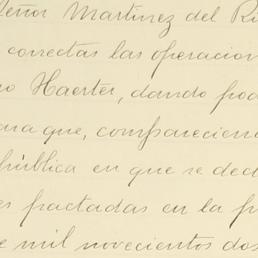 Señor Martínez del Rí
correctas las operacion
o Haerter, dando pod
ara que, comparecien
pública en que se decl
es pactadas en la p
e mil novecientos dos